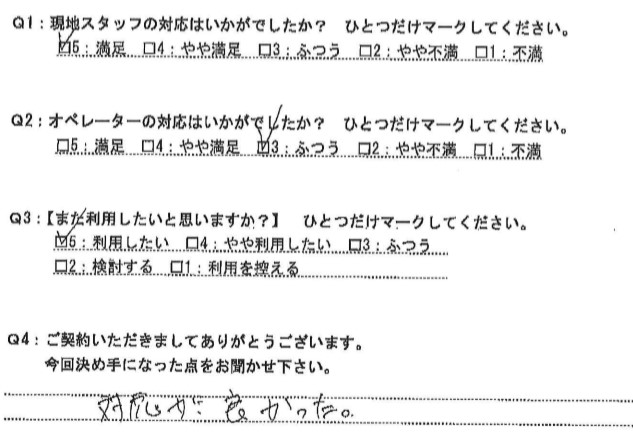 Q1：現地スタッフの対応はいかがでしたか？　ひとつだけマークしてください。
☑5：満足　□4：やや満足　□3：ふつう　□2：やや不満　□1：不満
Q2：オペレーターの対応はいかがでしたか？　ひとつだけマークしてください。
□5：満足　□4：やや満足　☑3：ふつう　□2：やや不満　□1：不満
Q3：【また利用したいと思いますか？】　ひとつだけマークしてください。
☑5：利用したい　□4：やや利用したい　□3：ふつう
□2：検討する　□1：利用を控える
Q4：ご契約いただきましてありがとうございます。
今回決め手になった点をお聞かせ下さい。
対応が良かった。